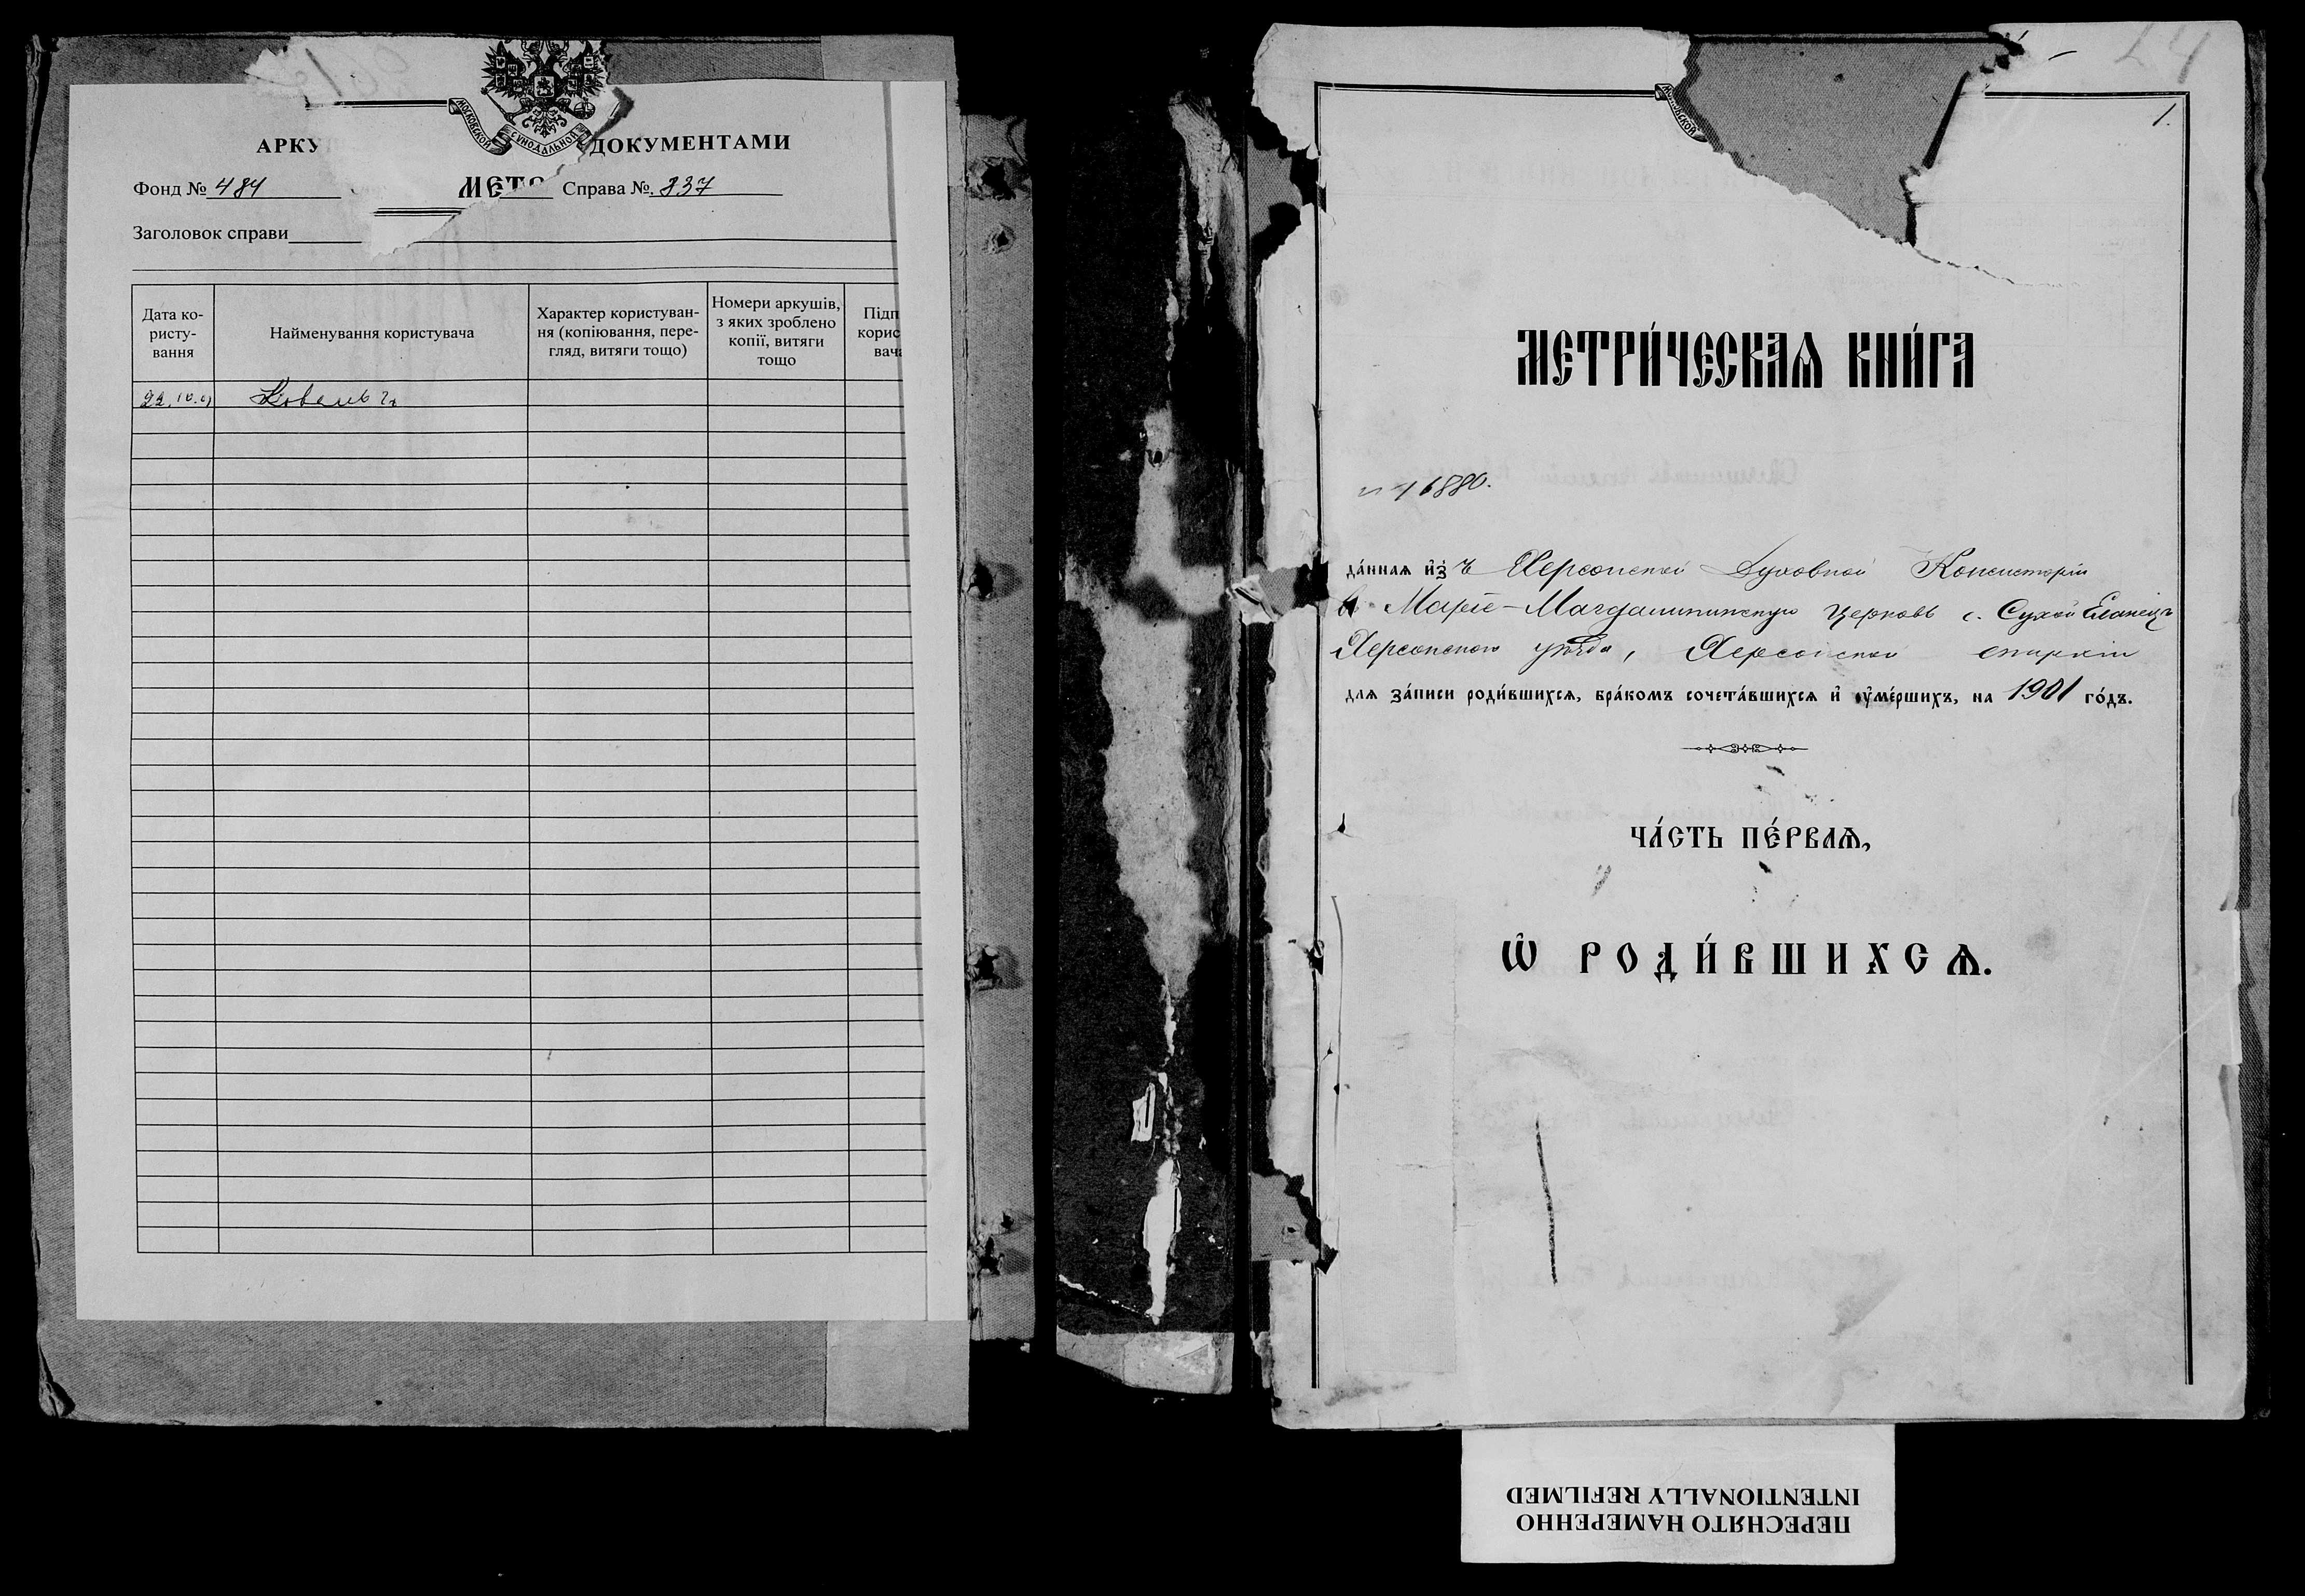 МОСКОВСКОЙ СѴНОДАЛЬНОЙ
АРКУ ДОКУМЕНТАМИ
Фонд № 484 МЕТ Справа № 837
Заголовок справи
Дата ко-
ристу-
вання
Найменування користувача
Характер користуван-
ня (копіювання, пере-
гляд, витяги тощо)
Номери аркушів,
з яких зроблено
копії, витяги
тощо
Підп
корис
вача
22.
1.
МЕТРИ́ЧЕСКАѦ КНИ́ГА
16880.
да́нная и҆зъ Херсонской Духовной Консисторіи
въ Маріе-Магдалининскую церковь с. Сухой Еланецъ
Херсонскаго уѣзда, Херсонской епархіи
для за́писи роди́вшихся, бра́комъ сочета́вшихся и҆ ѹ҆ме́ршихъ, на 1901 го́дъ.
ЧА́СТЬ ПЕ́РВАѦ,
Ѡ҆ РОДИ́ВШИХСѦ.
ПЕРЕСНЯТО НАМЕРЕННО
INTENTIONALLY REFILMED